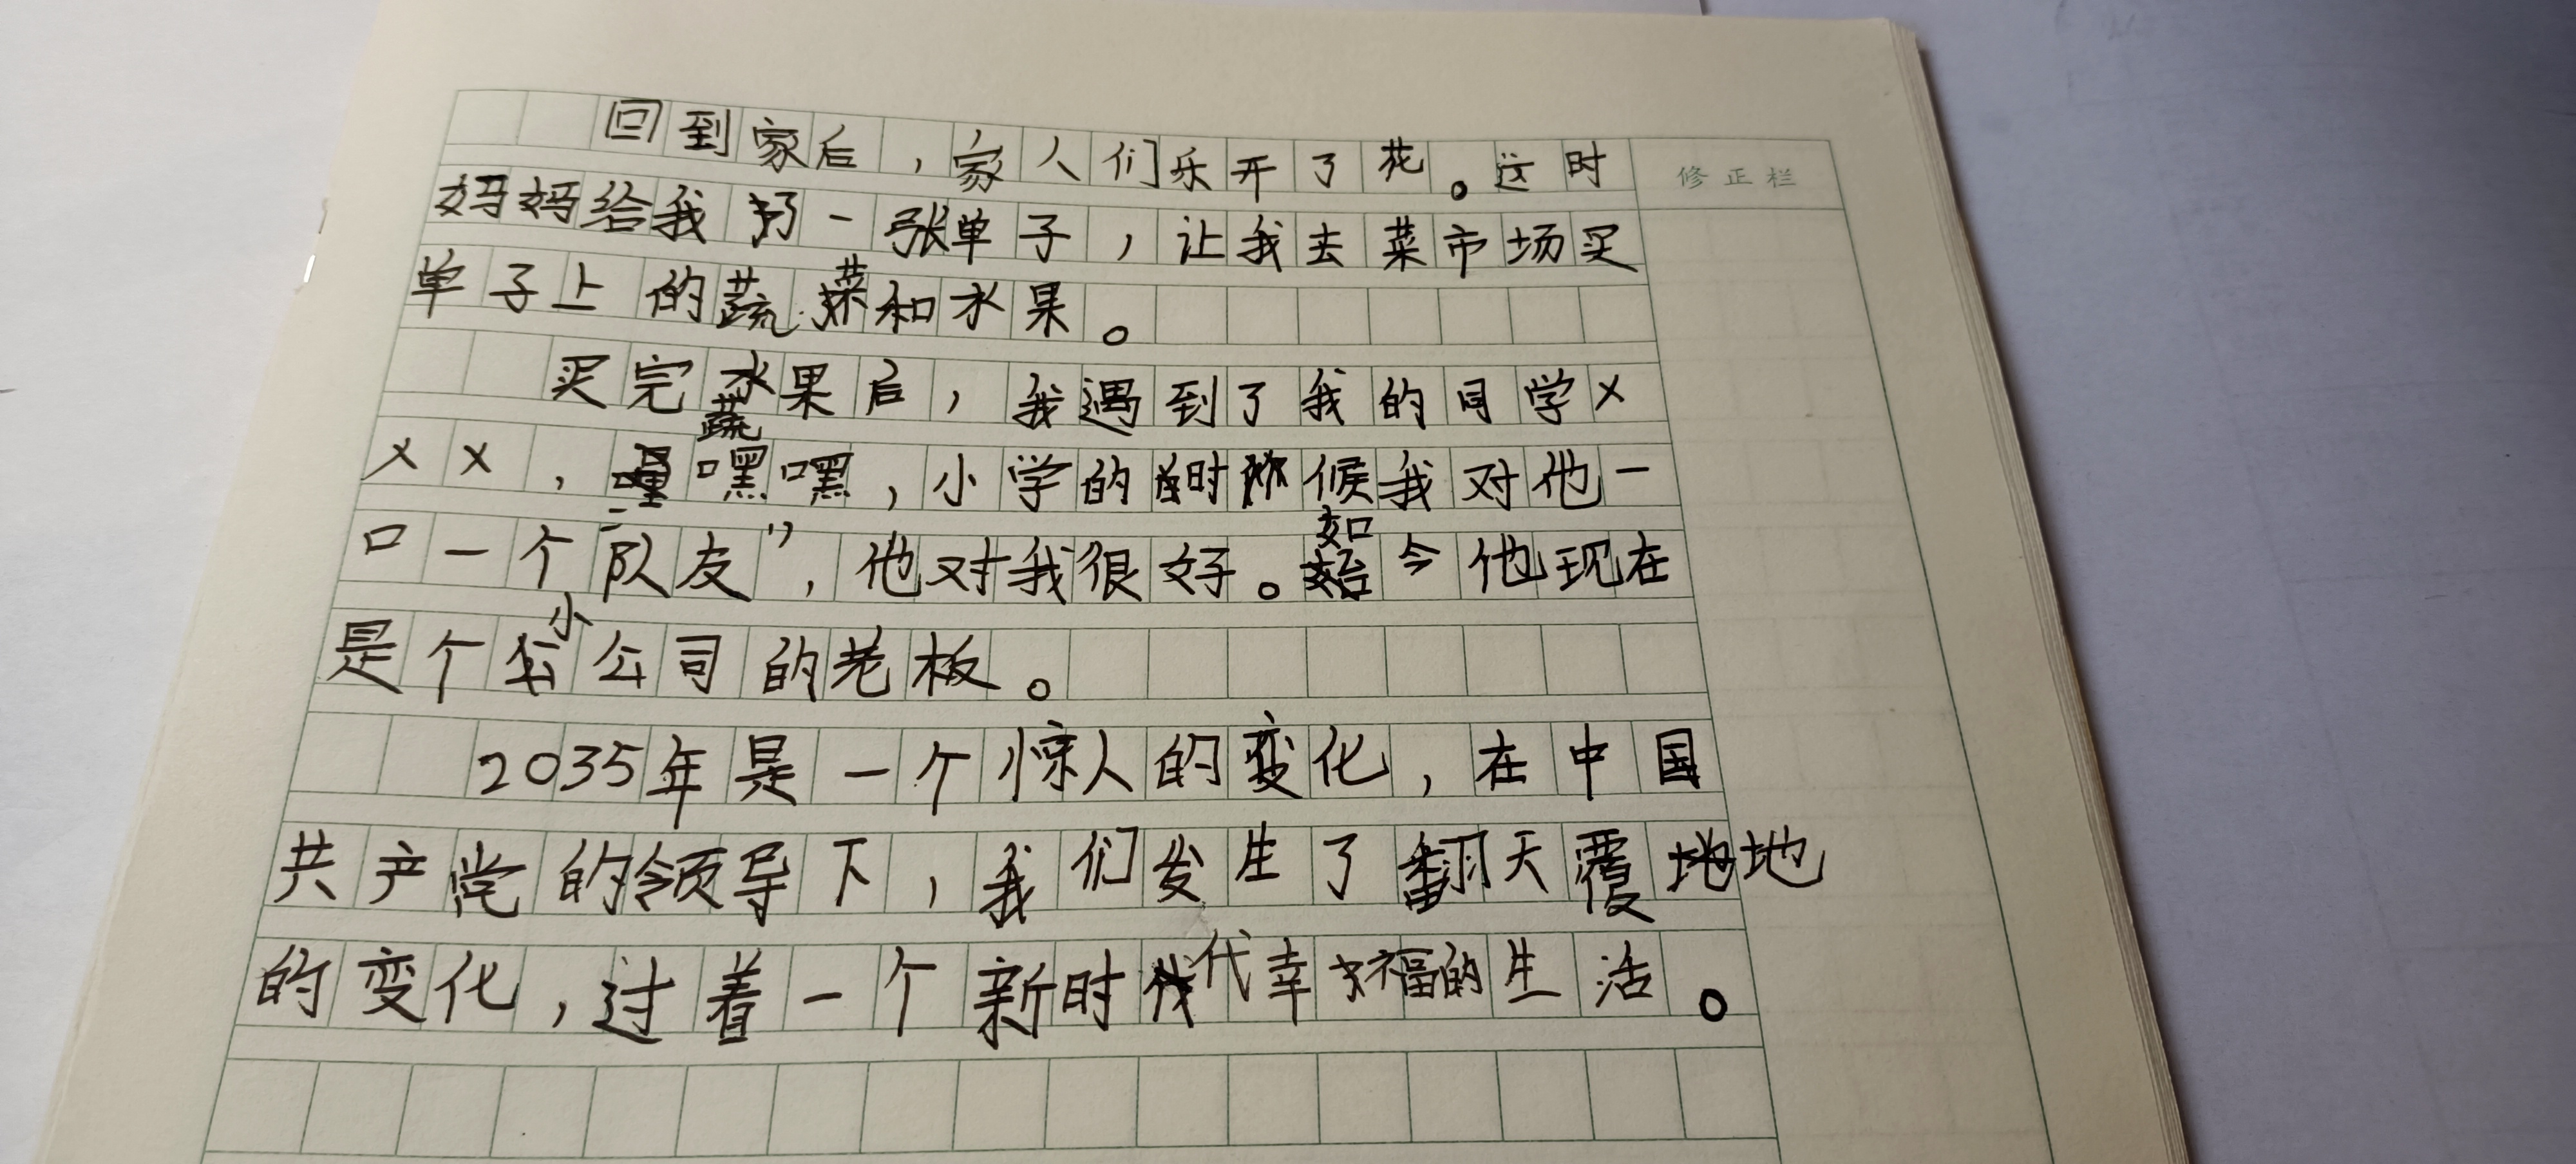 回到家后，家人们乐开了花。这时
修正栏
妈妈给我 一张单子，让我去菜市场买
单子上的蔬菜和水果。
买完水果后，我遇到了我的同学×
蔬
××，嘿嘿，小学的时候我对他一
口一个“队友”，他对我很好。如今他现在
是个小公司的老板。
2035年是一个惊人的变化，在中国
共产党的领导下，我们发生了翻天覆地
的变化，过着一个新时代幸福的生活。